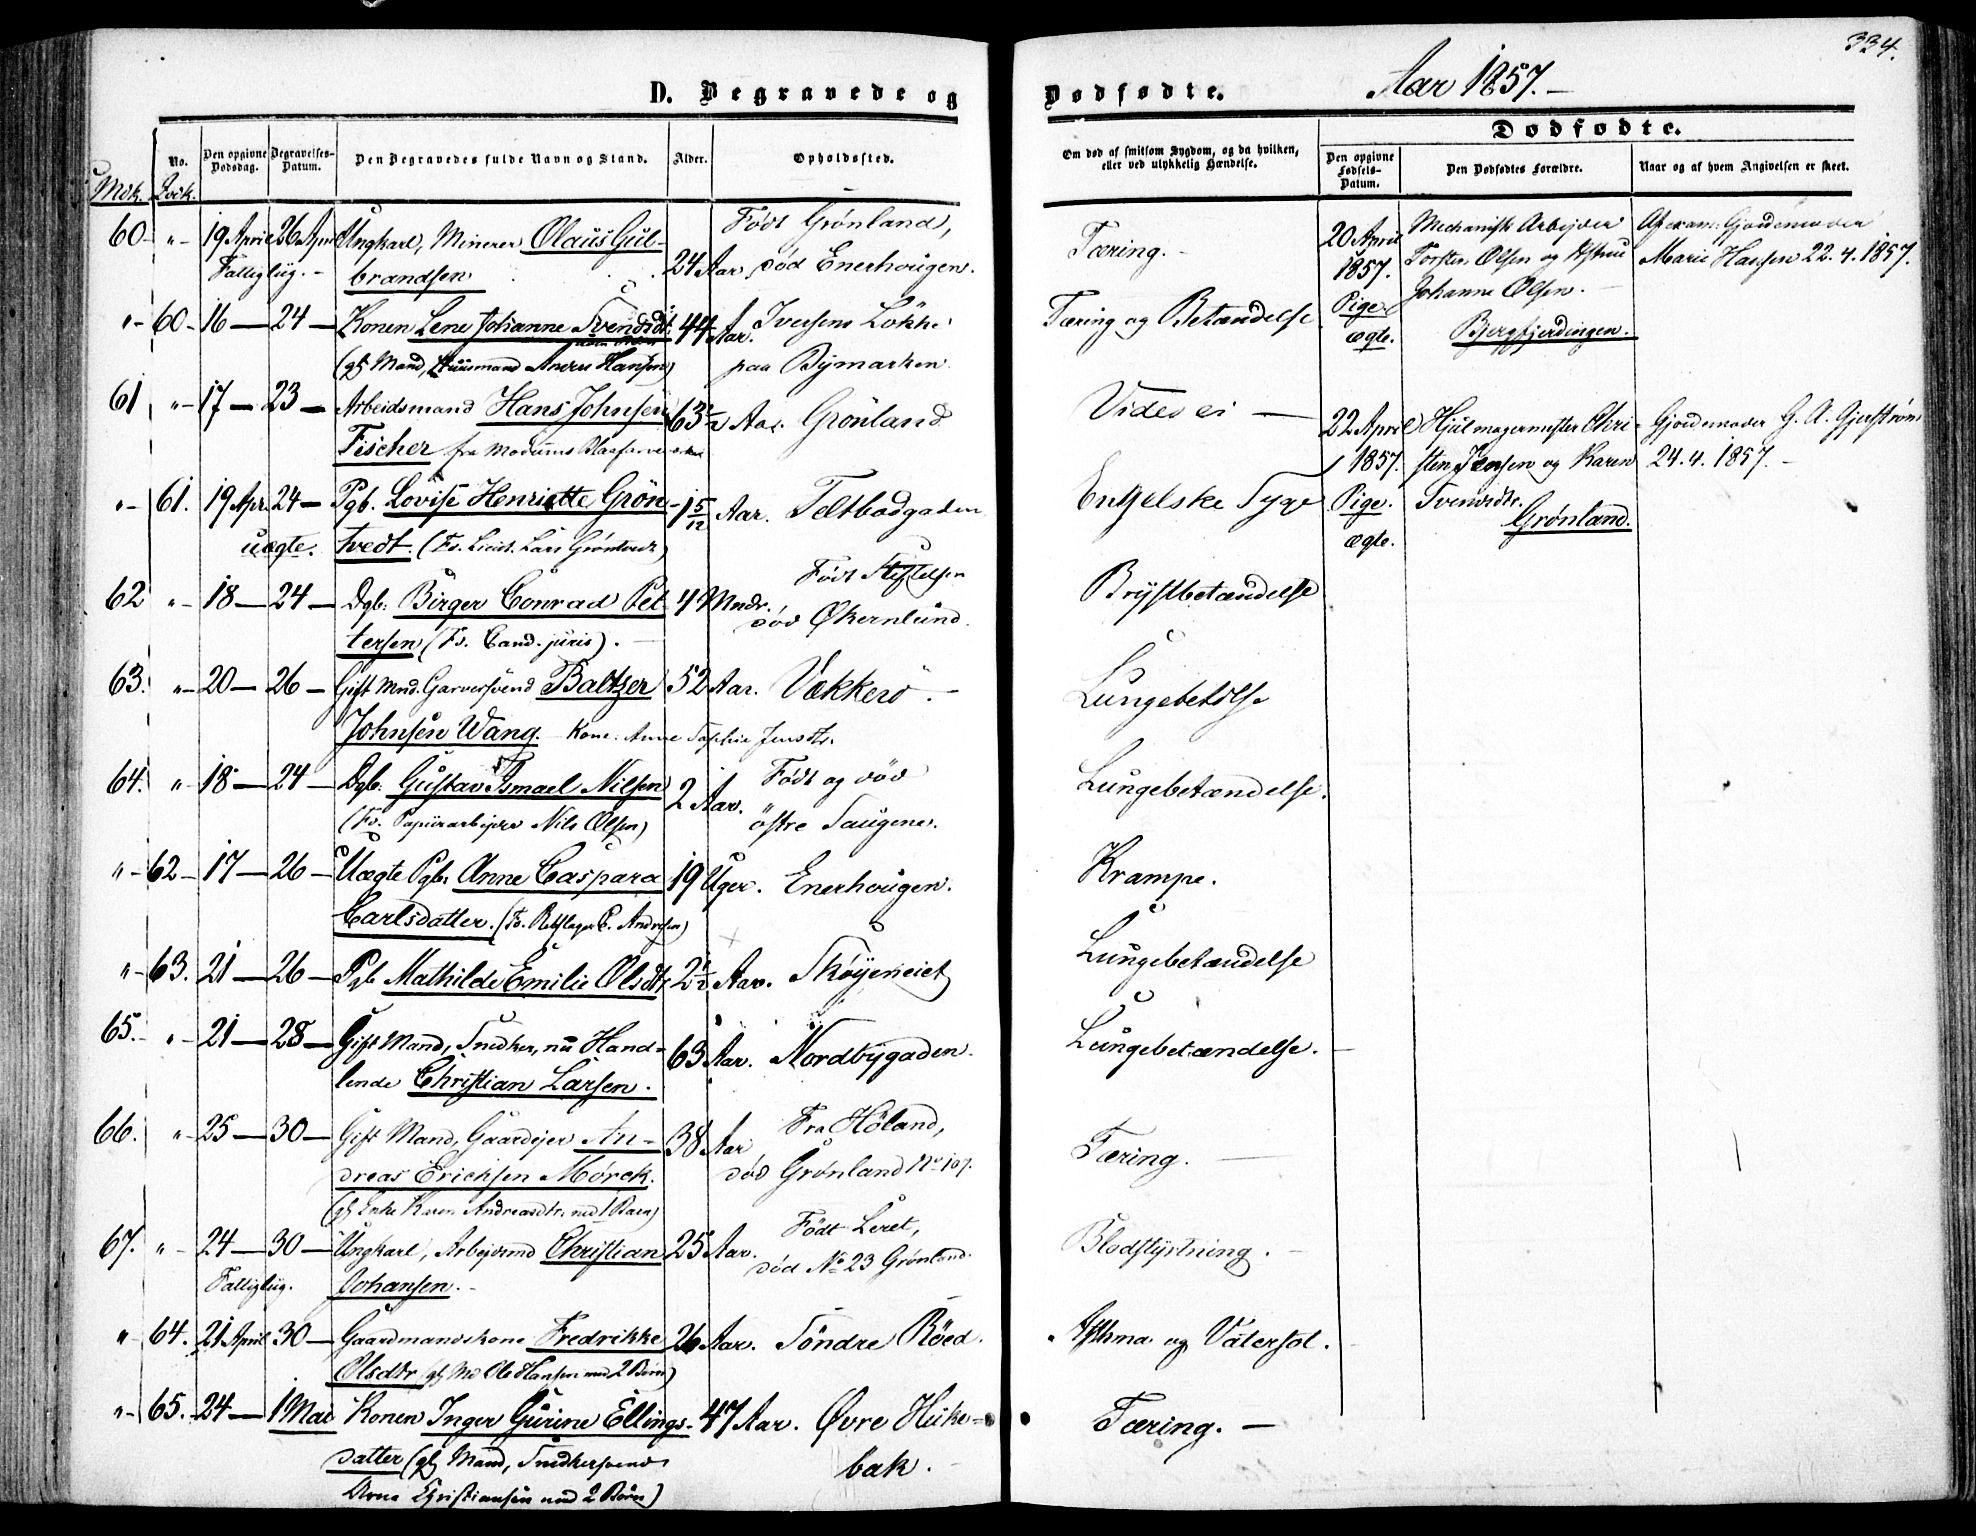 334.
D. Begravede og Dødfødte. Aar 1857.-
Mdk. No. Qvdk. Den opgivne Dødsdag. Begravelses-Datum. Den Begravedes fulde Navn og Stand. Alder. Opholdssted.
Om død af smitsom Sygdom, og da hvilken, eller ved ulykkelig Hændelse.
Dødfødte.
Den opgivne Fødsels-Datum. Den Dødfødtes Forældre. Naar og af hvem Angivelsen er skeet.
60 - " - 19 April 26 April Ungkarl, Minerer Olaus Gul-
Fattiglig. - brandsen 24 Aar
Født Grønland,
død Enerhougen.
Tæring. -
" - 60 - 16 - 24 - Konen Lene Johanne Svendsdtr 44 Aar.
(gft Mand, Huusmand Anders Hansen)
Iversens Løkke
paa Bymarken.
Tæring og Betændelse
61 " - 17 - 23 - Arbeidsmand Hans Johnsen 63½ Aar. Grønland
Fischer fra Modums Blaafarveværk
Vides ei -
" - 61. 19 Apr. 24 - Pgb. Lovise Henriette Grøn- 1 5/12 Aar. Teltbodgaden
uægte. tvedt. (Fa. Lieut. Lars Grøntvedt)
Engelske Syge
62 " - 18 - 24 - Dgb: Birger Conrad Pet- 4 Mndr.
tersen (Fa. Cand. juris). -
Født Stiftelsen
død Økernlund.
Brystbetændelse
63. " - 20 - 26 - Gift Mnd. Garversvend Baltzer 52 Aar. Vækkerö. -
Johnsen Wang. - Kone: Anne Sophie Jensdtr.
Lungebetdlse
64. " - 18 - 24 - Dgb: Gustav Ismael Nilsen 2 Aar.
(Fa. Papiirarbejder Nils Olsen)
Født og død
östre Saugene.
Lungebetændelse.
" - 62 - 17 - 26 - Uægte Pgb: Anne Caspara 19 Uger. Enerhougen.
Carlsdatter. (Fa. Rebslager C. Andersen)
Krampe.
" - 63. 21 - 26 - Pgb Mathilde Emilie Olsdtr 2½ Aar. Skøyeneiet
Lungebetændelse
65. - " - 21 - 28 - Gift Mand, Snedker, nu Hand-
lende Christian Larsen. 63 Aar. Nordbygaden.
Lungebetændelse. -
66. " - 25 - 30 - Gift Mand, Gaardejer An- 38 Aar
dreas Erichsen Mörck.
(gft Enke Karen Andreasdtr. med 1 Barn)
Fra Höland,
död Grønland No 107.
Tæring. -
67. " - 24 - 30 - Ungkarl, Arbejdsmd Christian 25 Aar.
Fattiglig. Johansen. -
Født Leret,
død No 23 Grønland.
Blodstyrtning. -
" 64. 21 April 30 - Gaardmandskone Fredrikke 26 Aar. Söndre Röed.
Olsdtr (gft Md Ole Hansen med 2 Børn)
Asthma og Vatersot.
" - 65. - 24 - 1 Mai Konen Inger Gurine Ellings- 47 Aar. Øvre Huke-
datter (gft Mand, Snedkersvend bak.
Arne Christiansen med 2 Børn)
Tæring. -
20 April
1857.
Pige
ægte.
Mechanisk Arbejder
Torsten Olsen og Hstru
Johanne Olsen. -
Bergfjerdingen.
Af exam. Gjordemoder
Marie Hansen 22. 4. 1857.
22 April
1857.
Pige.
ægte.
Hjulmagermester Chri-
sten Jensen og Karen
Svendsdtr.
Grønland.
Gjordemoder G. A. Gjerstrøm
24. 4. 1857. -